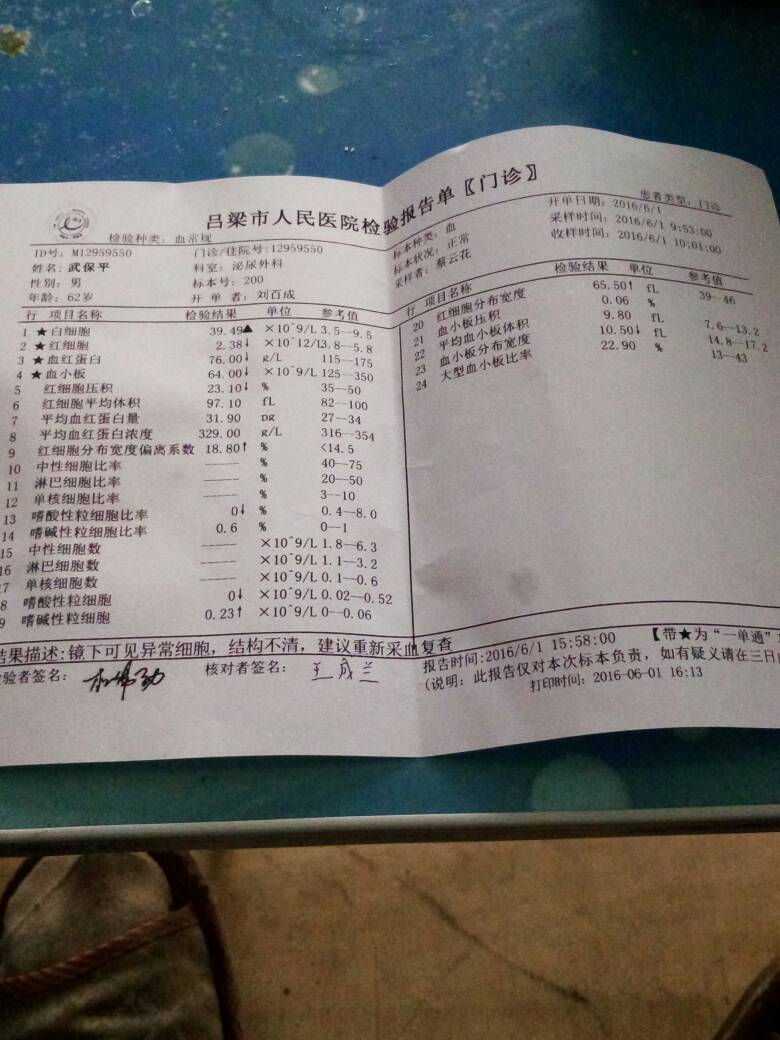 吕梁市人民医院检验报告单〖门诊〗
检验种类: 血常规
标本种类: 血
开单日期: 2016/6/1
患者类型: 门诊
ID号: M12959550
门诊/住院号: 12959550
标本状况: 正常
采样时间: 2016/6/1 9:53:00
姓名: 武保平
科室: 泌尿外科
采样者: 蔡云花
收样时间: 2016/6/1 10:01:00
性别: 男
标本号: 200
年龄: 62岁
开 单 者: 刘百成
行 项目名称 检验结果 单位 参考值
1 ★白细胞 39.49▲ ×10^9/L 3.5--9.5
2 ★红细胞 2.38↓ ×10^12/L 3.8--5.8
3 ★血红蛋白 76.00↓ g/L 115--175
4 ★血小板 64.00↓ ×10^9/L 125--350
5 红细胞压积 23.10↓ % 35--50
6 红细胞平均体积 97.10 fL 82--100
7 平均血红蛋白量 31.90 pg 27--34
8 平均血红蛋白浓度 329.00 g/L 316--354
9 红细胞分布宽度偏离系数 18.80↑ % <14.5
10 中性细胞比率 ----- % 40--75
11 淋巴细胞比率 ----- % 20--50
12 单核细胞比率 ----- % 3--10
13 嗜酸性粒细胞比率 0↓ % 0.4--8.0
14 嗜碱性粒细胞比率 0.6 % 0--1
15 中性细胞数 ----- ×10^9/L 1.8--6.3
16 淋巴细胞数 ----- ×10^9/L 1.1--3.2
7 单核细胞数 ----- ×10^9/L 0.1--0.6
8 嗜酸性粒细胞 0↓ ×10^9/L 0.02--0.52
9 嗜碱性粒细胞 0.23↑ ×10^9/L 0--0.06
行 项目名称 检验结果 单位 参考值
20 红细胞分布宽度 65.50↑ fL 39--46
21 血小板压积 0.06 %
22 平均血小板体积 9.80 fL 7.6--13.2
23 血小板分布宽度 10.50↓ fL 14.8--17.2
24 大型血小板比率 22.90 % 13--43
结果描述:镜下可见异常细胞，结构不清，建议重新采血复查
检验者签名:
核对者签名: 王成兰
报告时间:2016/6/1 15:58:00
【带★为“一单通”
(说明: 此报告仅对本次标本负责，如有疑义请在三日
打印时间: 2016-06-01 16:13